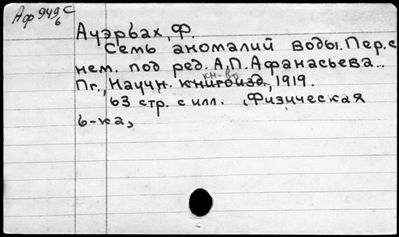 Аф 949 с
6
Ауэрбах, Ф.
Семь аномалий воды. Пер. с
нем. под ред. А.П. Афанасьева...
кн-во
Пг., Научн. книгоизд., 1919.
63 стр. с илл. (Физическая
б-ка)